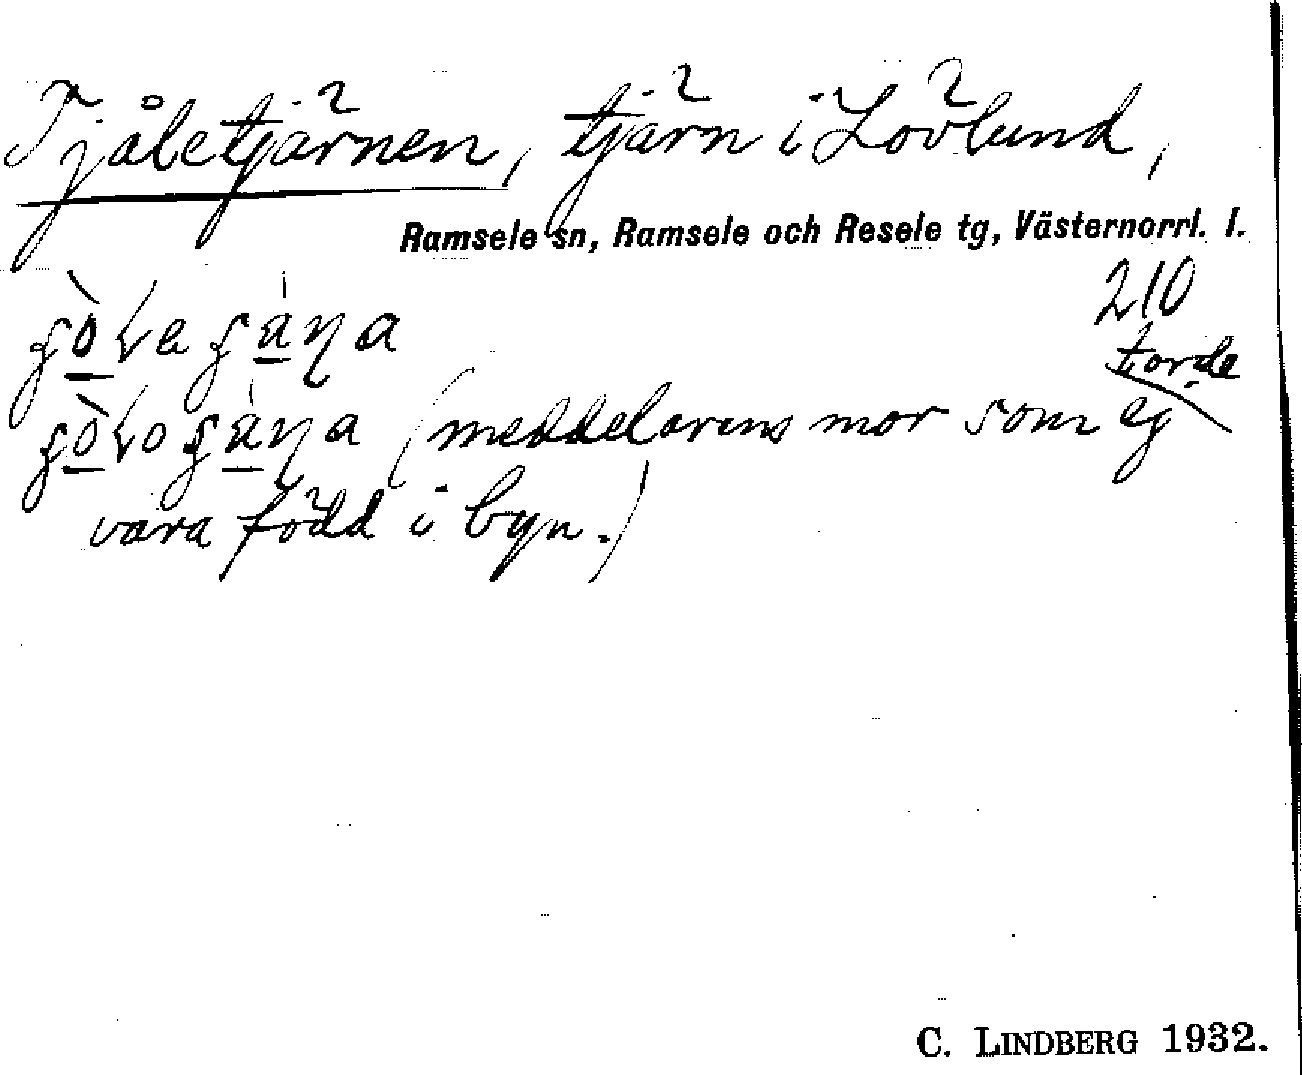 Tjåletjärnen, tjärn i Lövlund,
Ramsele sn, Ramsele och Resele tg, Västernorrl. l.
210
torde
(meddelarens mor som ej
vara född i byn.)
C. LINDBERG 1932.